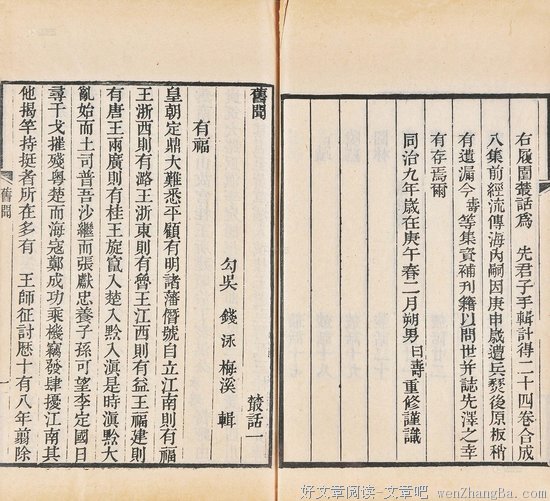 右履園叢話爲 先君子手輯計得二十四卷合成
八集前經流傳海內嗣因庚申歲遭兵燹後原板稍
有遺漏今壽等集資補刊籍以問世并誌先澤之幸
有存焉爾
同治九年歲在庚午春二月朔男曰壽重修謹識
舊聞 叢話一
勾吳 錢泳 梅溪 輯
有福
皇朝定鼎大難悉平顧有明諸藩僭號自立江南則有福
王浙西則有潞王浙東則有魯王江西則有益王福建則
有唐王兩廣則有桂王旋竄入楚入黔入滇是時滇黔大
亂始而土司普吾沙繼而張獻忠養子孫可望李定國日
尋干戈摧殘粵楚而海寇鄭成功乘機竊發肆擾江南其
他揭竿持挺者所在多有 王師征討歷十有八年翦除
舊聞 一
好文章阅读-文章吧 wenZhangBa.com